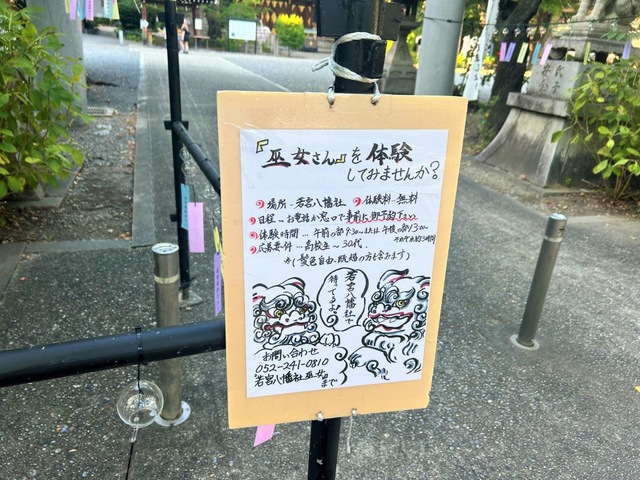 『巫女さん』を体験
してみませんか?
場所…若宮八幡社 体験料…無料
日程…お電話か窓口で事前に御予約下さい
体験時間…午前の部9:30～または午後の部13:00～
応募要件…高校生～30代
※(髪色自由、既婚の方も含みます)
若宮八幡社で
待ってるよ
お問い合わせ
052-241-0810
若宮八幡社『巫女』
まで